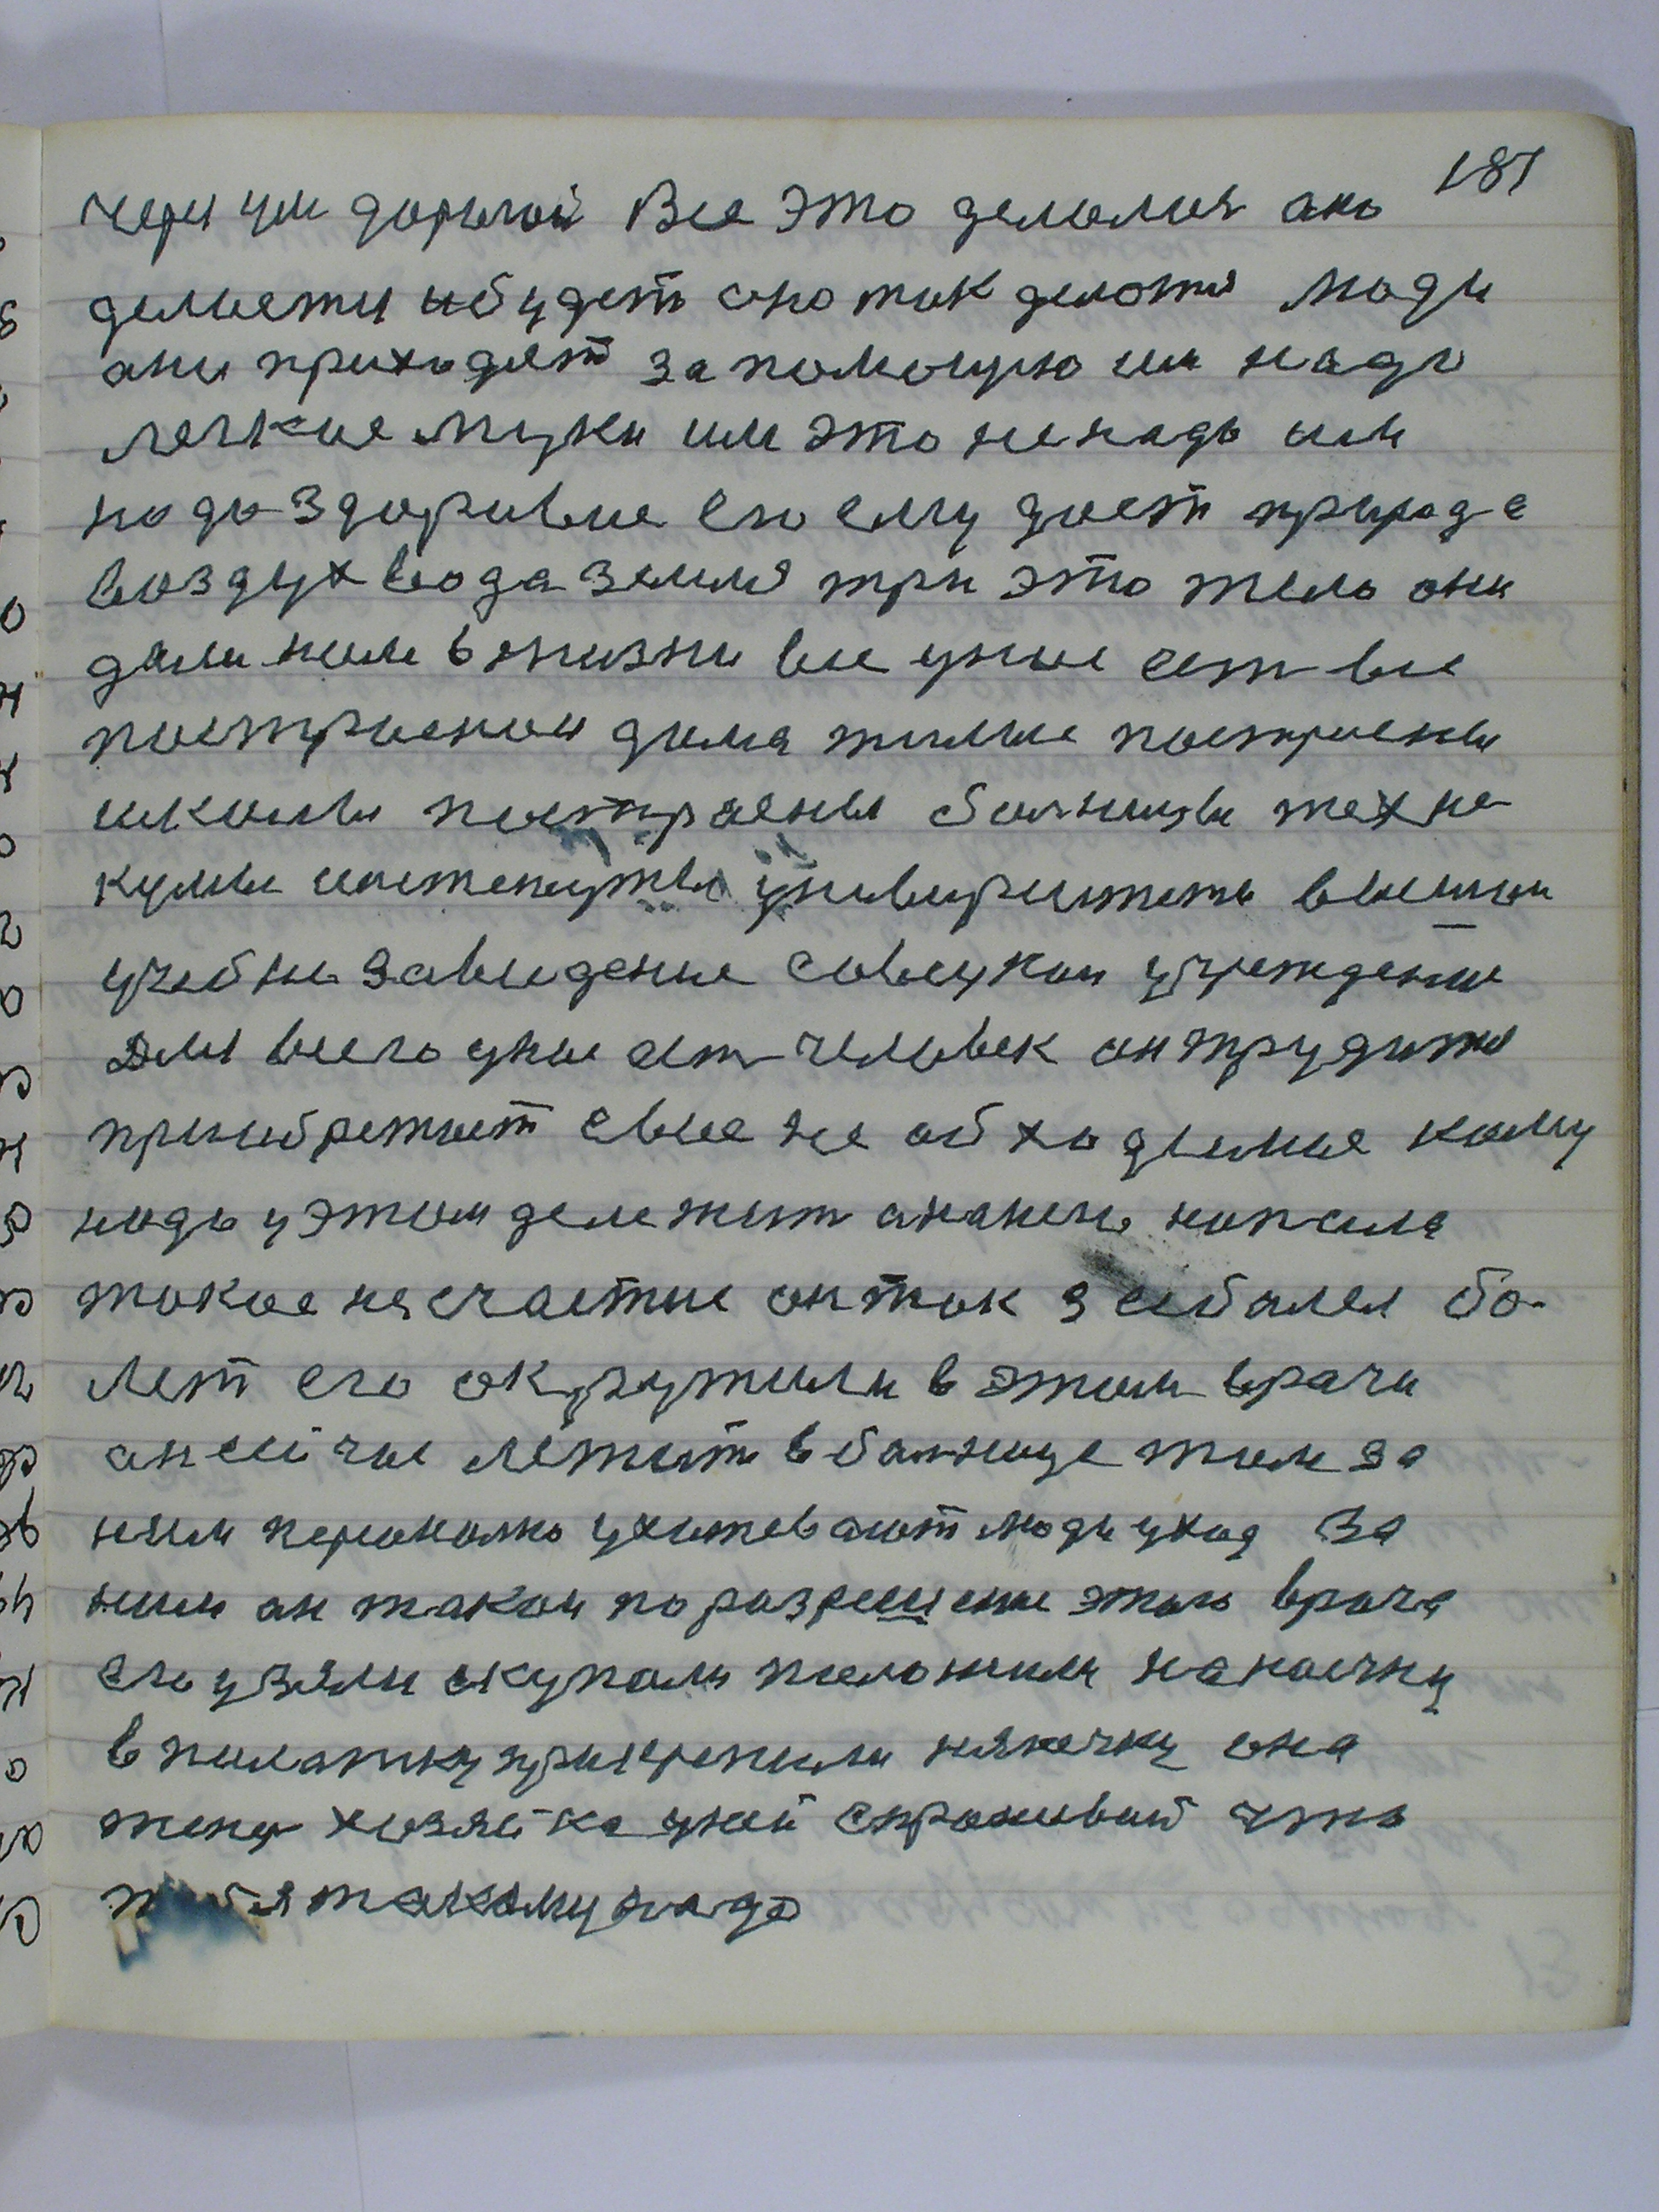 181
через ум дорогой Все это делолося ано
делыется и будеть оно так делотся люди
ани приходят за помощью им надо
легкие муки им это ненадо им
надо здоровие его ему дает природа
воздух вода земля три это тело они
дали нам в жизни все унас есть все
построенои дома жилые построены
школы построены больницы техне
кумы инстетуты универститеты вышии
учебны заведение совецкои учреждение
Для всего унас есть человек он трудится
приобретает свое не обходимое кому
надо у этом деле жить а нанего напала
такое не счастие он так заболел бо-
леет его окружили в этом врачи
ансейчас лежит в больнице там за
ним персонално ухажевают люди уход за
ним ан такои по разрешение этого врача
его узяли скупали положили на коечку
в полатку прикрепили нянечку она
тепер хозяйка уней спрашивай что
тебя такому надо